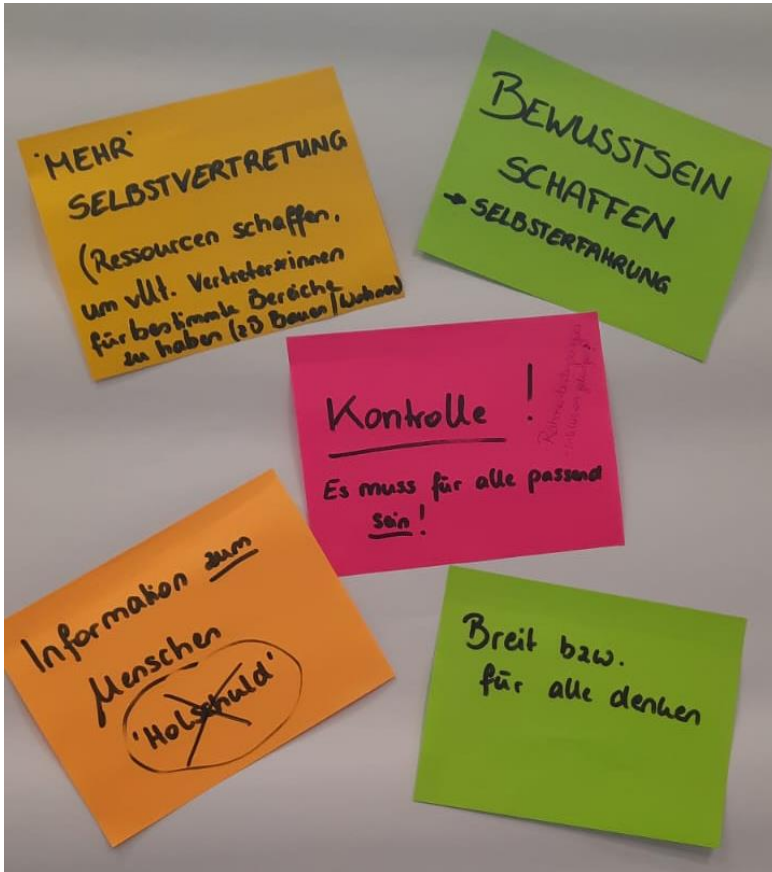 'MEHR'
SELBSTVERTRETUNG
(Ressourcen schaffen,
um vllt. Vertreter*innen
für bestimmte Bereiche
zu haben (zB Bauen / Wohnen)
BEWUSSTSEIN
SCHAFFEN
→ SELBSTERFAHRUNG
Kontrolle !
Es muss für alle passend
sein!
Information zum
Menschen
'Holschuld'
Breit bzw.
für alle denken